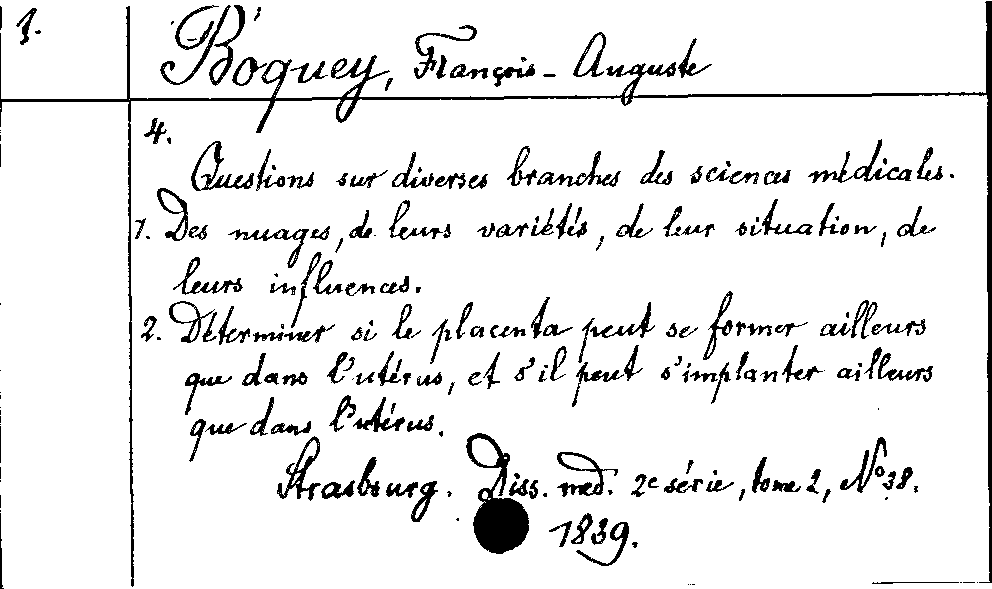 1.
Boquey, François-Auguste
4.
Questions sur diverses branches des sciences médicales.
1. Des nuages, de leurs variétés, de leur situation, de
leurs influences.
2. Déterminer si le placenta peut se former ailleurs
que dans l'utérus, et s'il peut s'implanter ailleurs
que dans l'utérus.
Strasbourg. Diss. med. 2e série, tome 2, No 38.
1839.